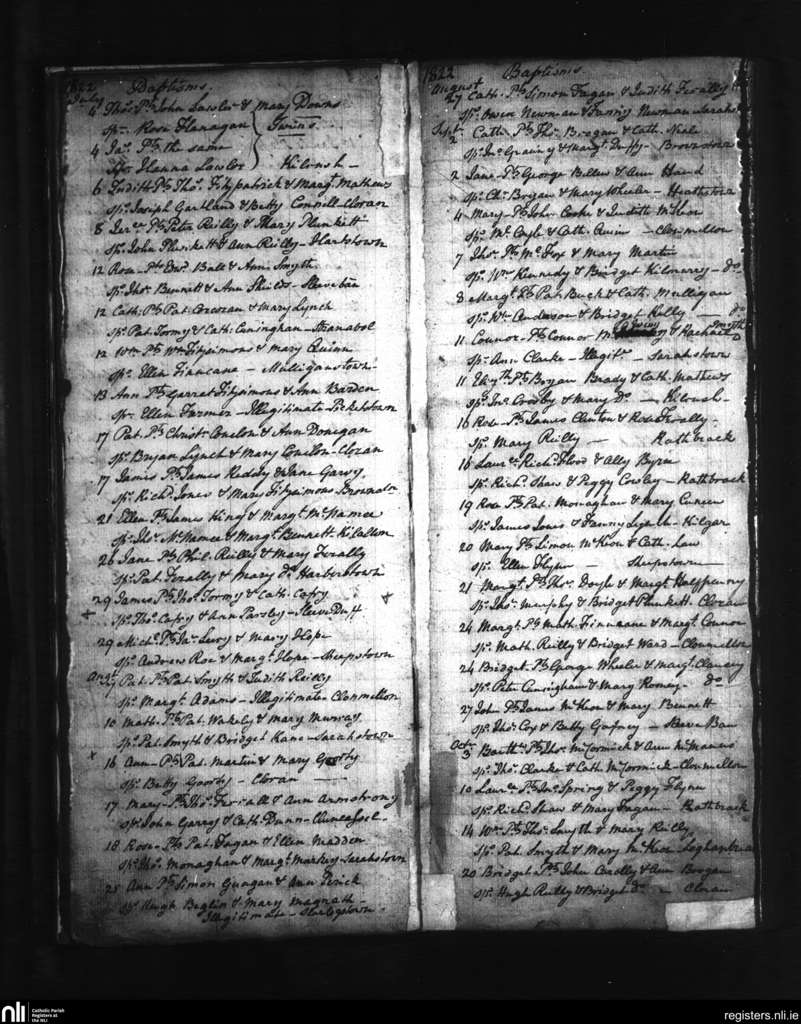 1822 Baptisms
July
4 Thos. Ps. John Lawler & Mary Downs
Sps. Rose Flanagan
Twins
4 Jas. Ps. the same
Sps. Hanna Lawler Kilrush
6 Judith Ps. Thos. Fitzpatrick & Margt. Mathews
Sps. Joseph Gartland & Betty Connell - Cloran
8 Ps. Peter Reilly & Mary Plunkett
Sps. John Plunkett & Ann Reilly - Harlstown
12 Rose Ps. Edwd. Ball & Ann Smyth
Sps. Thos. Bennett & Ann Shields - Sleveban
12 Cath. Ps. Pat. Corcoran & Mary Lynch
Sps. Pat. Tormy & Cath. Coningham -
12 Wm. Ps. Wm. Fitzsimons & Mary Quinn
Sps. Ellen Finncane - Mulliganstown
13 Ann Ps. Garret Fitzsimons & Ann Barden
Sps. Ellen Farmer - Illegitimate -
17 Pat. Ps. Christr. Conelon & Ann Donegan
Sps. Bryan Lynch & Mary Conelon - Cloran
17 James Ps. James Keddy & Jane Garvy
Sps. Richd. Jones & Mary Fitzsimons
21 Ellen Ps. James King & Margt. McNamee
Sps. Thos. McNamee & Margt. Bennett - Kilallon
26 Jane Ps. Phil. Reilly & Mary Ferally
Sps. Pat. Ferally & Mary Do. Harberstown
29 James Ps. Thos. Tormy & Cath. Cafry
Sps. Thos. Cafry & Ann Parsley - Sleve Duff
29 Michl. Ps. Jas. Levy & Mary Hope
Sps. Andrew Roe & Margt. Hope - Sheepstown
Augt.
Pat. Ps. Pat Smyth & Judith Reilly
Sps. Margt. Adams - Illegitimate - Clonmellon
10 Math. Ps. Pat. Wakely & Mary Murray
Sps. Pat. Smyth & Bridget Kane - Sarahstown
x 16 Ann Ps. Pat. Martin & Mary Goorty
Sps. Betty Goorty - Cloran
17 Mary Ps. Thos. Feriall & Ann Armstrong
Sps. John Garry & Cath. Dunn -
18 Rose Ps. Pat. Fagan & Ellen Madden
Sps. Thos. Monaghan & Margt. Markey - Sarahstown
25 Ann Ps. Simon Gungan & Ann
Sps. Hugh Beglin & Mary Magrath -
Illegitimate -
1822 Baptisms
August
27 Cath. Ps. Simon Fagan & Judith Ferally
Sps. Owen Newman & Fanny Newman
Sept.
2 Cath. Ps. Thos. Brogan & Cath.
Sps. & Margt. Duffy - Brownstown
2 Jane Ps. George Bellew & Ann Hand
Sps. Bryan & Mary Wheeler - Heathstown
4 Mary Ps. John Cooke & Judith McKeon
Sps. Ml. Coyle & Cath. Quin - Clonmellon
7 Thos. Ps. Ml. Fox & Mary Martin
Sps. Wm. Kennedy & Bridget - Do.
8 Margt. Ps. Pat. Buck & Cath. Mulligan
Sps. Wm. Anderson & Bridget Reilly - Do.
11 Connor Ps. Connor & Rachael Smyth
Sps. Ann Clarke - Illegite. - Sarahstown
11 Elizth. Ps. Bryan Brady & Cath. Mathews
Sps. Jno. Crosby & Mary Do. - Kilrush
16 Rose Ps. James Clinton & Rose Ferally
Sps. Mary Reilly - Rathbrack
16 Laurce. Richd. Flood & Ally Byrn
Sps. Richd. Shaw & Peggy Cooley - Rathbrack
19 Rose Ps. Pat. Monaghan & Mary Cuneen
Sps. James Jones & Fanny Lynch - Kilgar
20 Mary Ps. Simon McKeon & Cath. Law
Sps. Ellen Flynn - Sheepstown
21 Margt. Ps. Thos. Doyle & Margt. Halfpenny
Sps. Thos. Murphy & Bridget Plunkett - Cloran
24 Margt. Ps. Math. Finncane & Margt. Connor
Sps. Math. Reilly & Bridget Ward - Clonmellon
24 Bridget Ps. George Wheeler & Margt. Clancey
Sps. Peter Cunigham & Mary Rooney - Do.
27 John Ps. James McKeon & Mary Bennett
Sps. Thos. Cox & Betty Gafney - Sleve Ban
Octr.
3 Barthw. Ps. Thos. McCormick & Ann McManus
Sps. Thos. Clarke & Cath. McCormick - Clonmellon
10 Laurce. Ps. Jno. Spring & Peggy Flynn
Sps. Richd. Shaw & Mary Fagan - Rathbrack
14 Wm. Ps. Thos. Smyth & Mary Reilly
Sps. Pat. Smyth & Mary McKeon
20 Bridget Ps. John Carolly & Ann Brogan
Sps. Hugh Reilly & Bridget Do. - Cloran
nli
Catholic Parish
Registers at
the NLI
registers.nli.ie